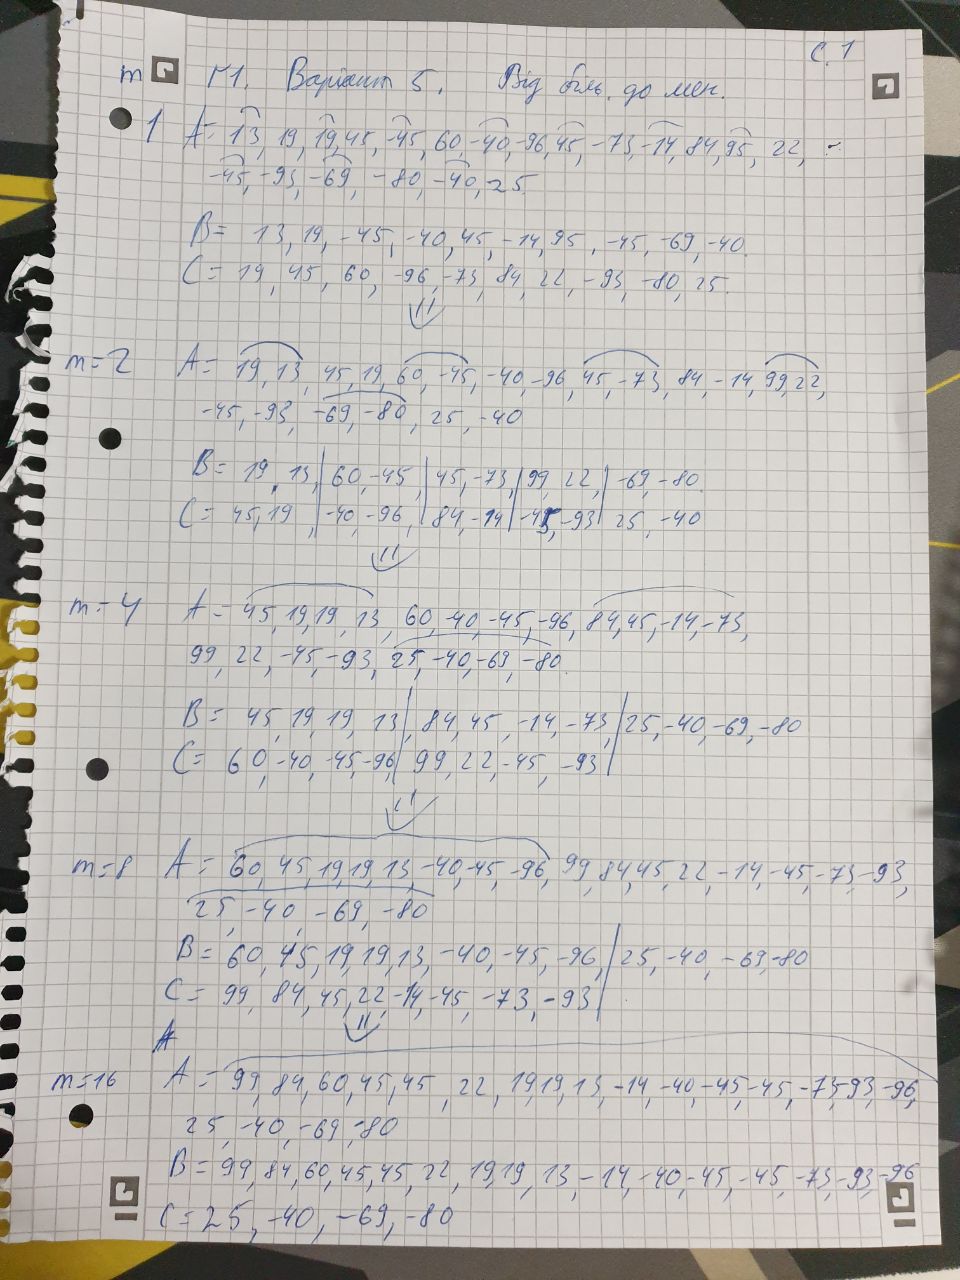 с. 1
m Г1. Варіант 5. Від біль. до мен.
1 A = 13, 19, 19, 45, -45, 60, -40, -96, 45, -73, -14, 84, 95, 22,
-45, -93, -69, -80, -40, 25.
B = 13, 19, -45, -40, 45, -14, 95, -45, -69, -40.
C = 19, 45, 60, -96, -73, 84, 22, -93, -80, 25.
m=2 A = 19, 13, 45, 19, 60, -45, -40, -96, 45, -73, 84, -14, 99, 22,
-45, -93, -69, -80, 25, -40
B = 19, 13, | 60, -45, | 45, -73, | 99, 22, | -69, -80.
C = 45, 19, | -40, -96, | 84, -14 | -45, -93 | 25, -40
m=4 A = 45, 19, 19, 13, 60, -40, -45, -96, 84, 45, -14, -73,
99, 22, -45, -93, 25, -40, -69, -80.
B = 45, 19, 19, 13, | 84, 45, -14, -73, | 25, -40, -69, -80
C = 60, -40, -45, -96, | 99, 22, -45, -93 |
m=8 A = 60, 45, 19, 19, 13, -40, -45, -96, 99, 84, 45, 22, -14, -45, -73, -93,
25, -40, -69, -80
B = 60, 45, 19, 19, 13, -40, -45, -96, | 25, -40, -69, -80
C = 99, 84, 45, 22, -14, -45, -73, -93 |
m=16 A = 99, 84, 60, 45, 45, 22, 19, 19, 13, -14, -40, -45, -45, -73, -93, -96,
25, -40, -69, -80
B = 99, 84, 60, 45, 45, 22, 19, 19, 13, -14, -40, -45, -45, -73, -93, -96
C = 25, -40, -69, -80